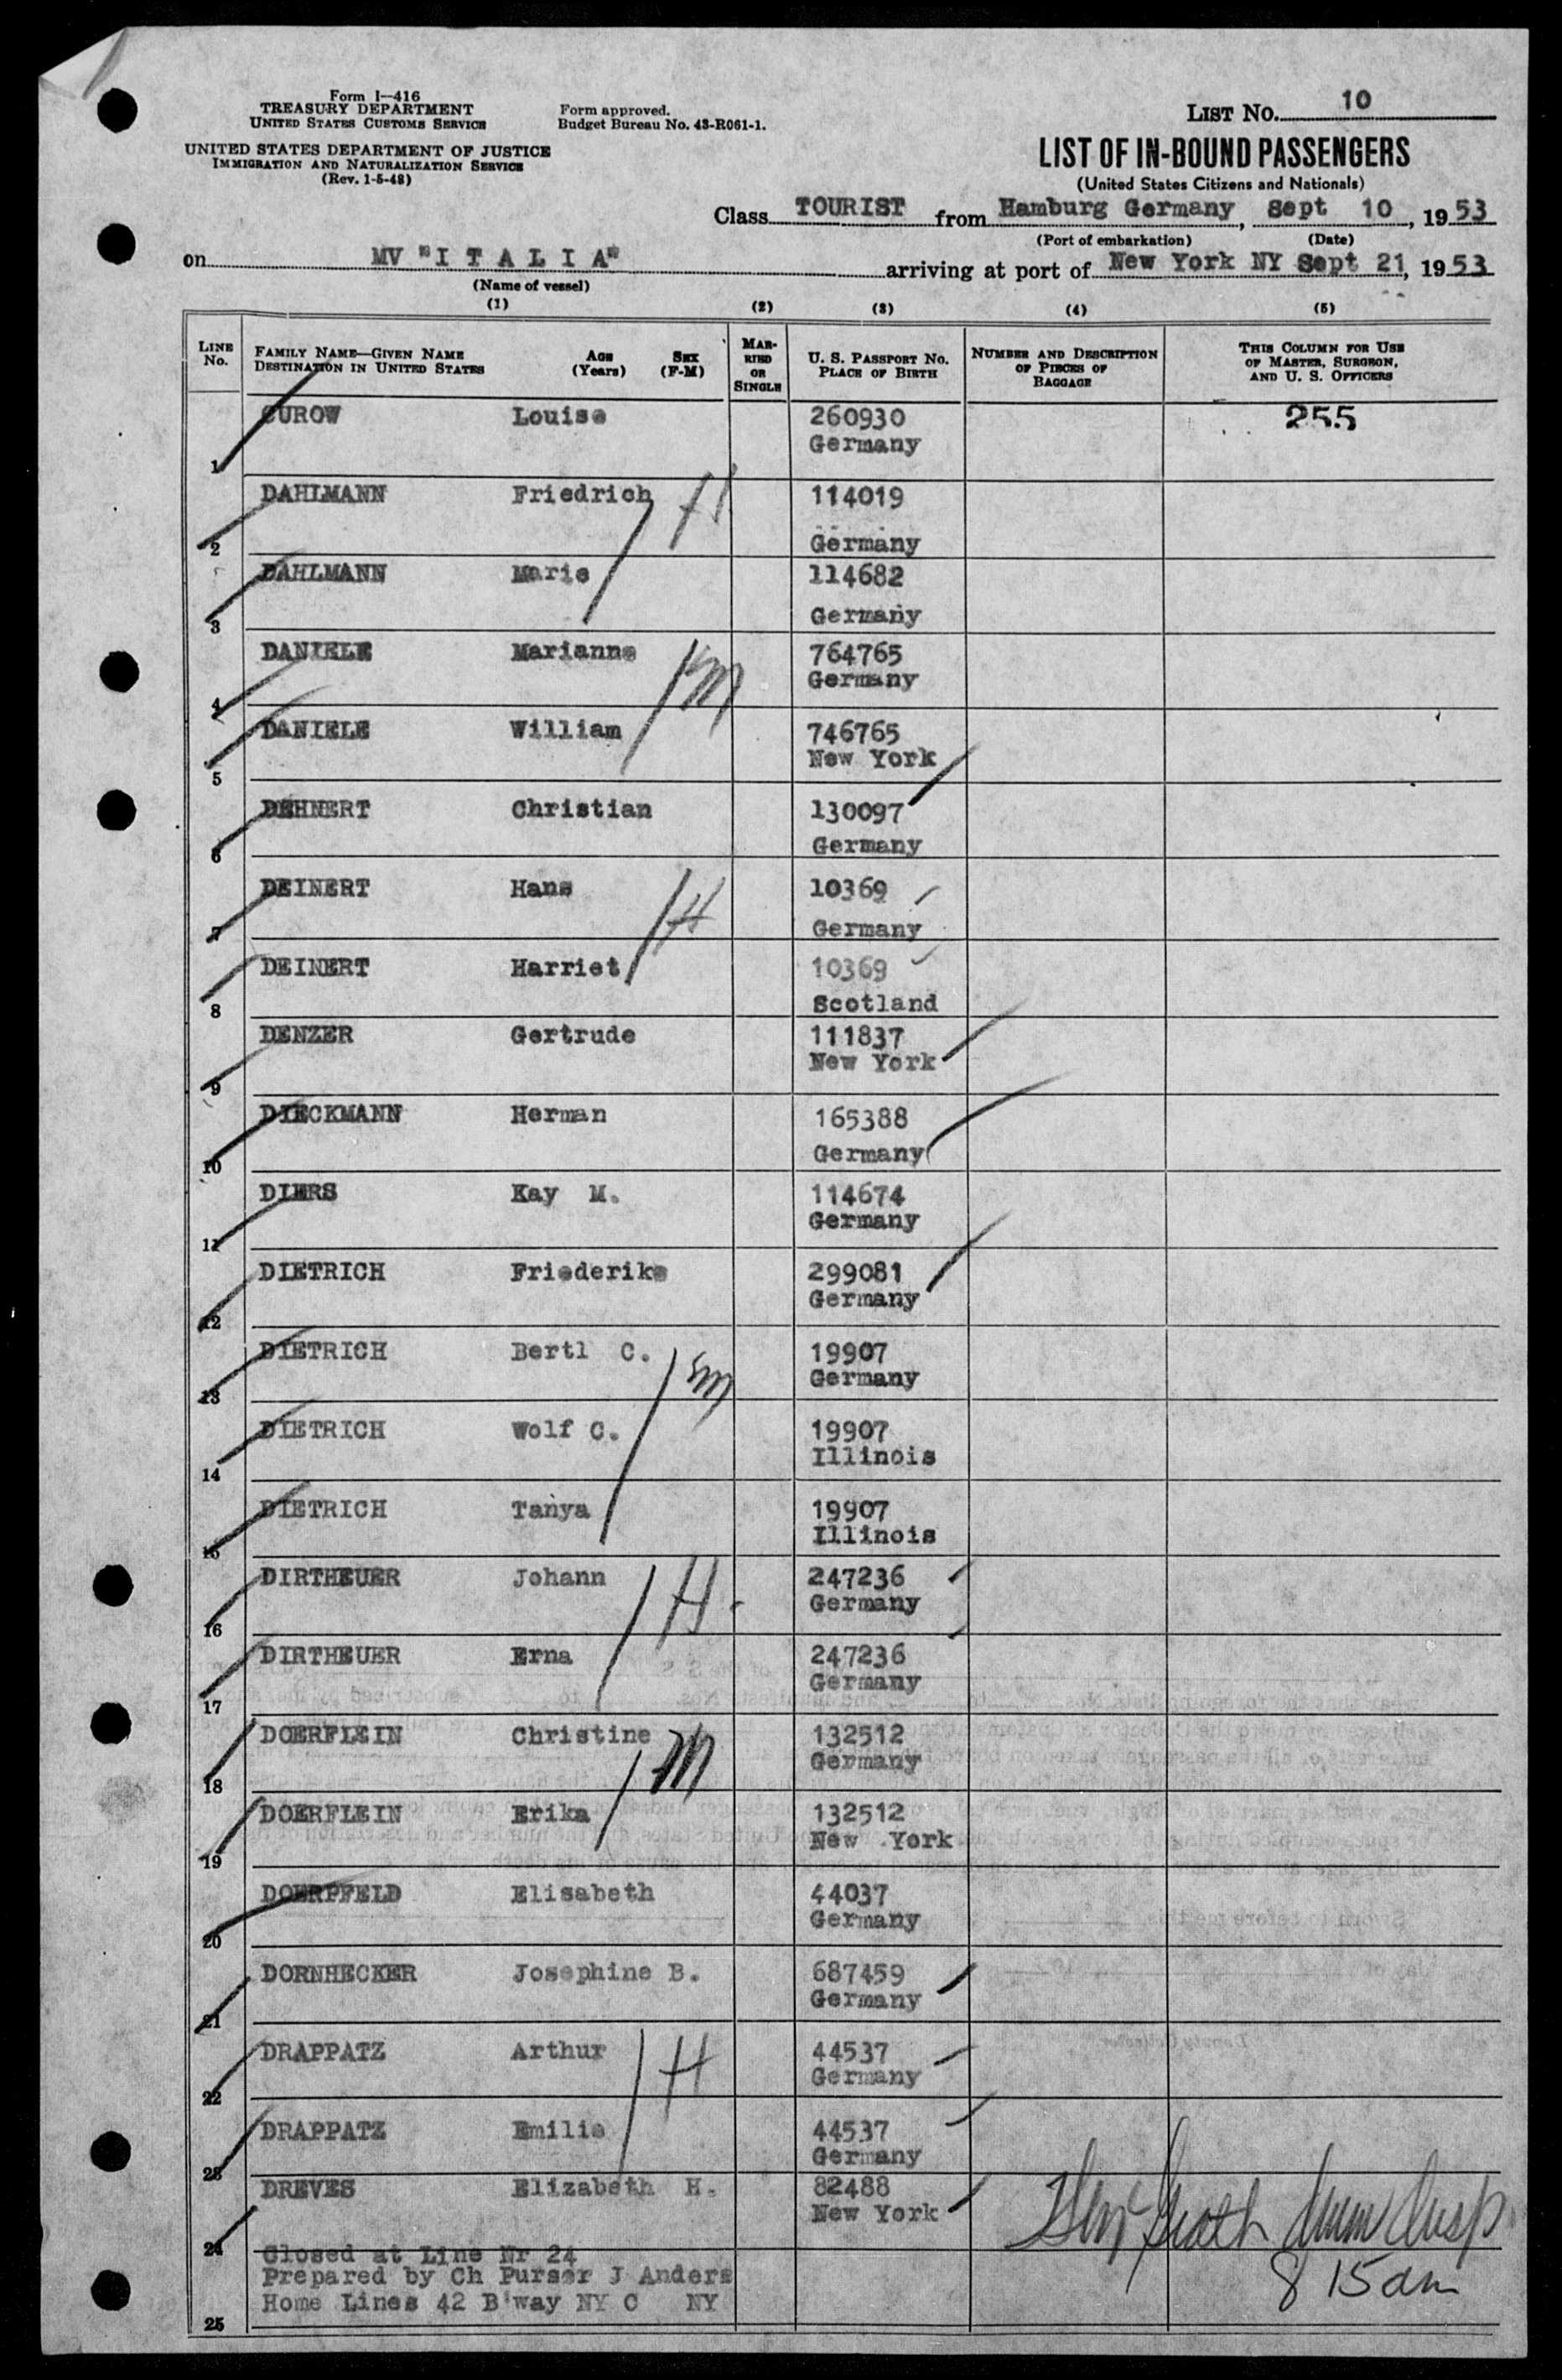 Form I—416
TREASURY DEPARTMENT
UNITED STATES CUSTOMS SERVICE
UNITED STATES DEPARTMENT OF JUSTICE
IMMIGRATION AND NATURALIZATION SERVICE
(Rev. 1-5-48)
Form approved.
Budget Bureau No. 43-R061-1.
LIST NO. 10
LIST OF IN-BOUND PASSENGERS
(United States Citizens and Nationals)
Class TOURIST from Hamburg Germany, Sept 10, 1953
(Port of embarkation) (Date)
on MV "I T A L I A" arriving at port of New York NY Sept 21, 1953
(Name of vessel)
(1) (2) (3) (4) (5)
LINE No. FAMILY NAME—GIVEN NAME DESTINATION IN UNITED STATES AGE (Years) SEX (F-M) MARRIED OR SINGLE U. S. PASSPORT NO. PLACE OF BIRTH NUMBER AND DESCRIPTION OF PIECES OF BAGGAGE THIS COLUMN FOR USE OF MASTER, SURGEON, AND U. S. OFFICERS
CUROW Louise 260930 255
Germany
1
DAHLMANN Friedrich H 114019
2 Germany
DAHLMANN Marie 114682
3 Germany
DANIELE Marianne M 764765
Germany
4
DANIELE William 746765
New York
5
DEHNERT Christian 130097
6 Germany
DEINERT Hans H 10369
7 Germany
DEINERT Harriet 10369
8 Scotland
DENZER Gertrude 111837
New York
9
DIECKMANN Herman 165388
10 Germany
DIERS Kay M. 114674
Germany
11
DIETRICH Friederike 299081
Germany
12
DIETRICH Bertl C. M 19907
Germany
13
DIETRICH Wolf C. 19907
Illinois
14
DIETRICH Tanya 19907
Illinois
15
DIRTHEUER Johann H 247236
Germany
16
DIRTHEUER Erna 247236
Germany
17
DOERFLEIN Christine M 132512
Germany
18
DOERFLEIN Erika 132512
New York
19
DOERPFELD Elisabeth 44037
Germany
20
DORNHECKER Josephine B. 687459
Germany
21
DRAPPATZ Arthur H 44537
Germany
22
DRAPPATZ Emilie 44537
Germany
23
DREVES Elizabeth H. 82488
New York
24
Closed at Line Nr 24
Prepared by Ch Purser J Anders
8 15 am
Home Lines 42 B'way NY C NY
25